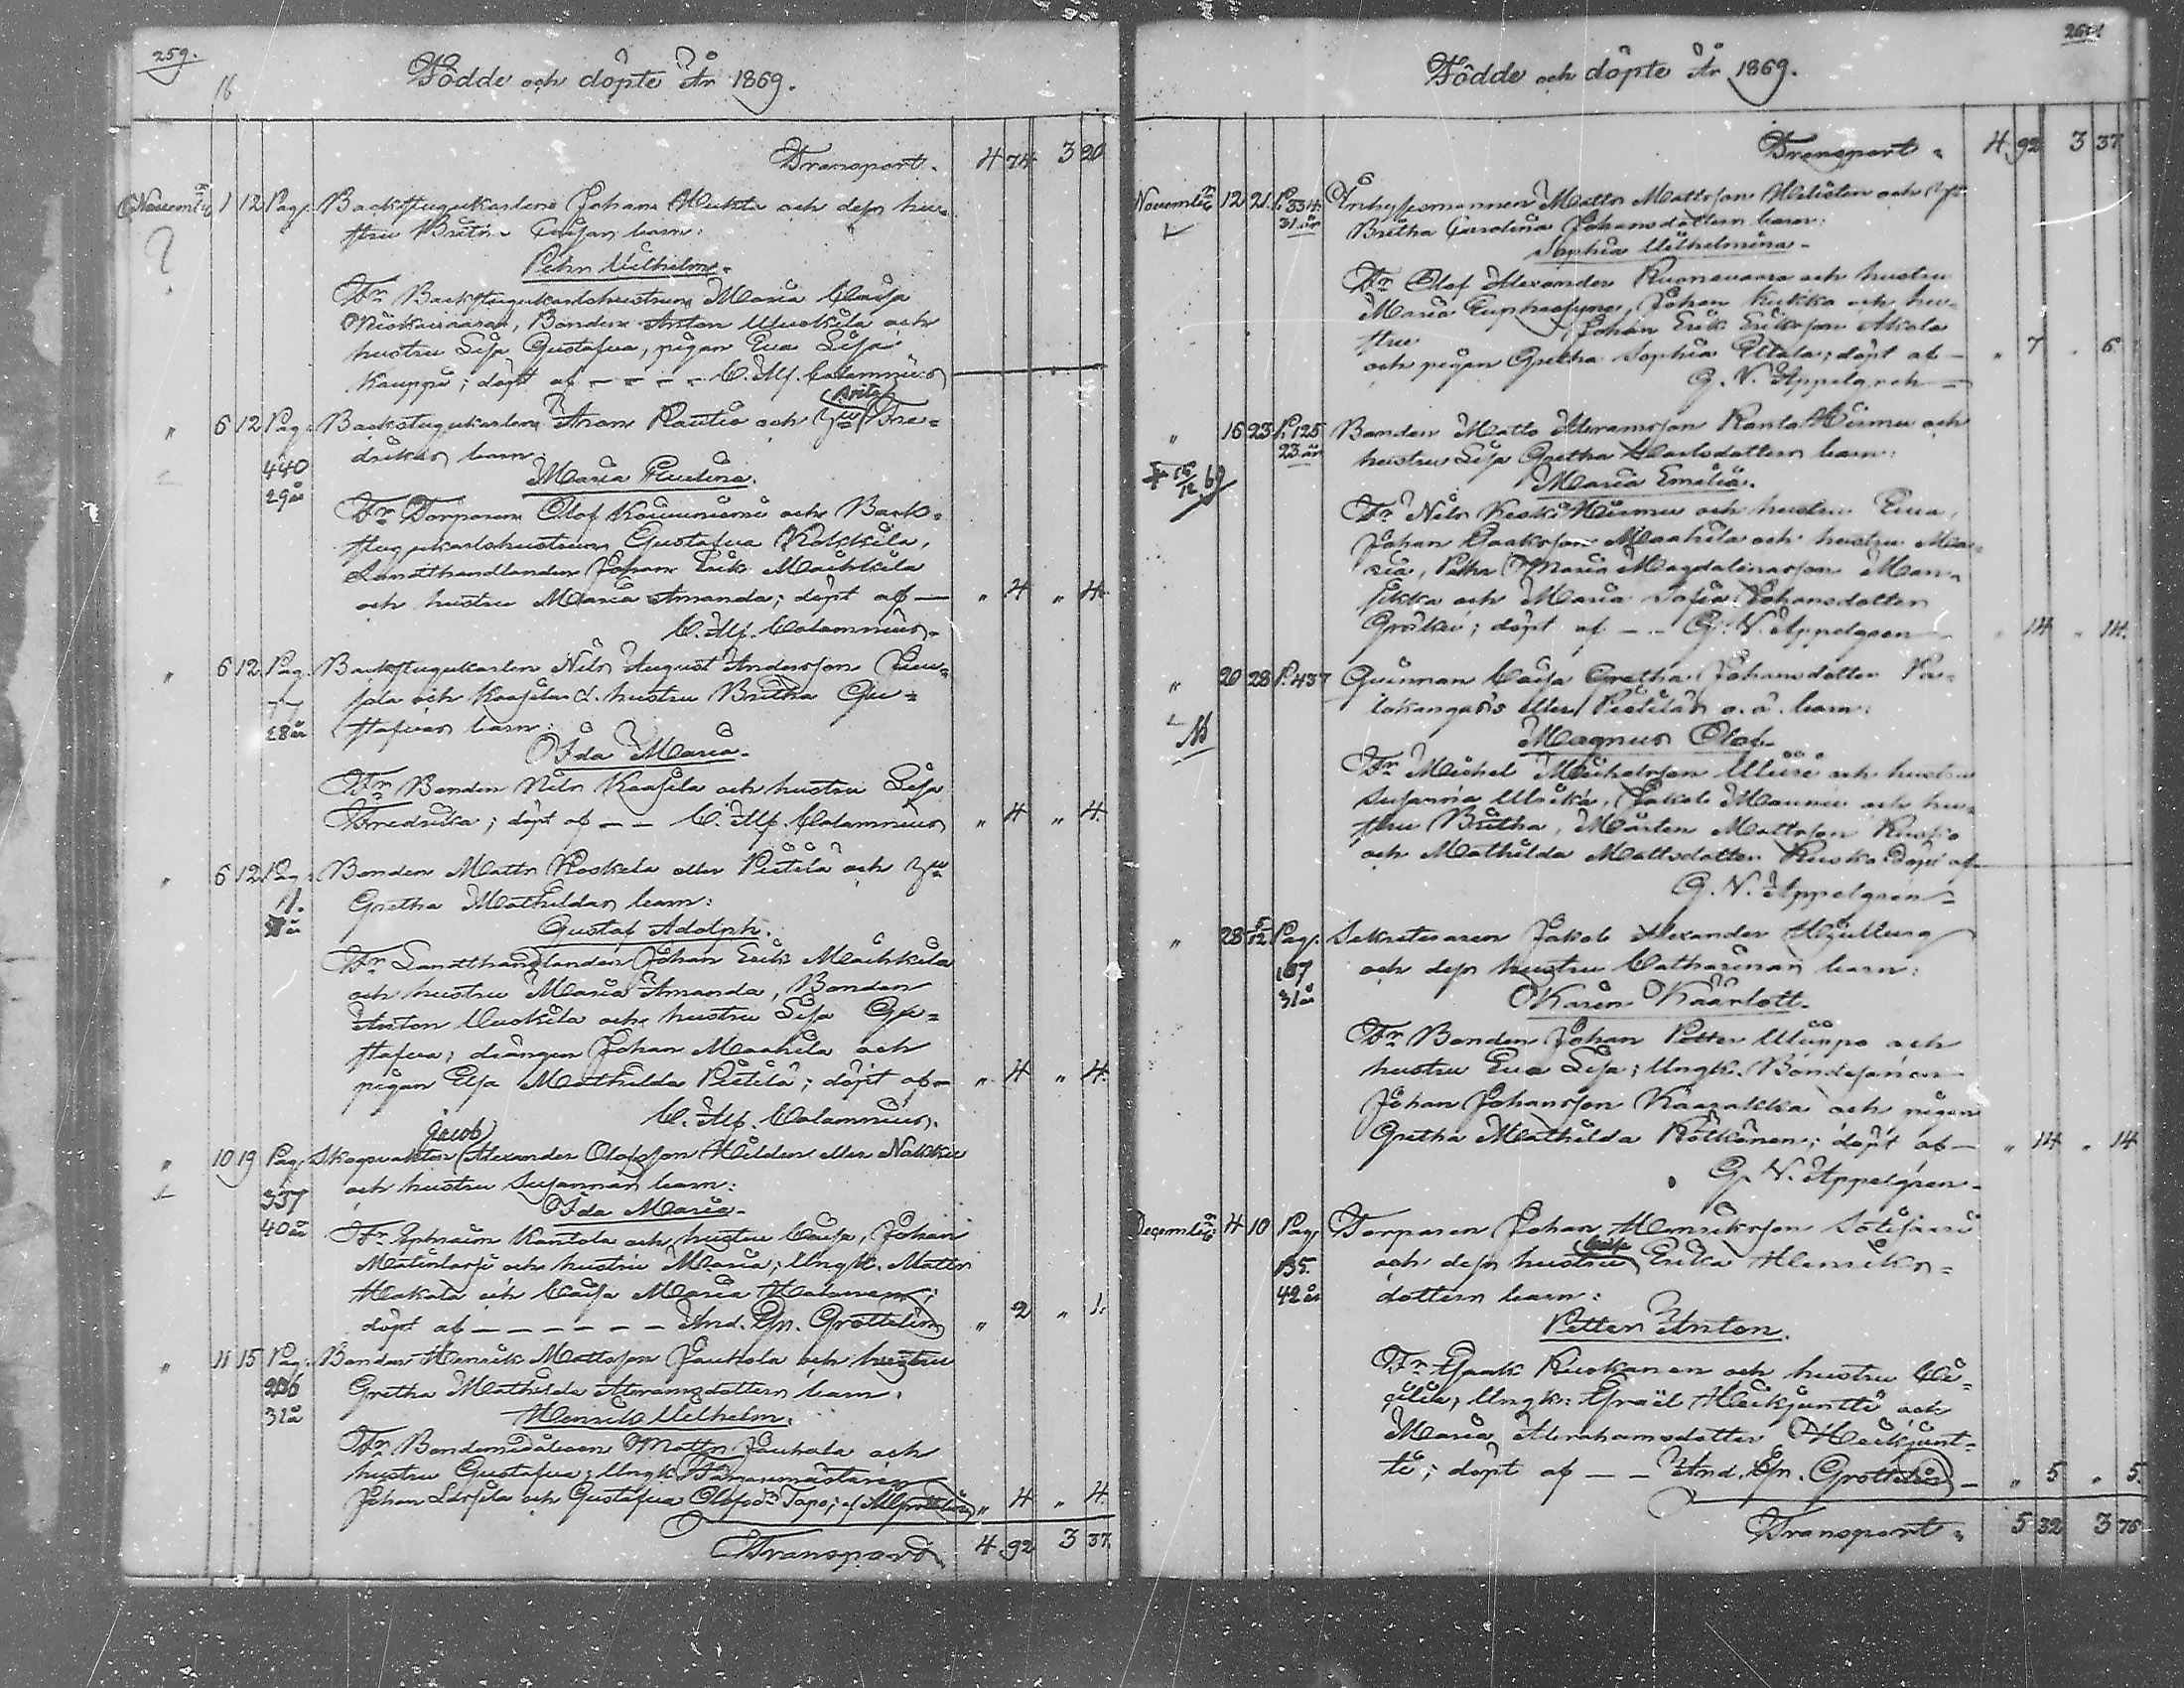 259.
16
Födde och döpte År 1869.
Transport. 4 74 3 20
November 1 12 Pag. Backstugukarlens Johan Huhta och dess hu-
stru Brita Caisas barn:
Petter Wilhelm.
Fr. Backstugukarlshustrun Maria Caisa
Niskavaara, Bonden Anton Uuskila och
hustru Lisa Gustafva, pigan Eva Lisa
Kauppi; döpt af — — — — C. Alf. Calamnius
" 6 12 Pag. Backstugukarlens Aron Rautio och Hu Brita Fre-
440 drikas barn:
29 år Maria Paulina.
Fr. Torparen Olof Kouvuniemi och Back-
stugukarlshustrun Gustafva Rokkila,
Landthandlanden Johan Erik Machkila
och hustru Maria Amanda; döpt af — " 4 " 4.
C. Alf. Calamnius.
" 6 12 Pag. Backstugukarlen Nils August Andersson
77 och Kaasila d. hustru Britha Gu-
28 år stafvas barn:
Ida Maria.
Fr. Bonden Nils Kaasila och hustru Lisa
Fredrika; döpt af — — C. Alf. Calamnius " 4 " 4.
" 6 12 Pag. Bonden Matts Koskela eller Pietilä och Hu
11. Gretha Mathildas barn:
Gustaf Adolph.
Fr. Landthandlanden Johan Erik Machkila
och hustru Maria Amanda, Bonden
Anton Uuskila och hustru Lisa Gu-
stafva; drängen Johan Maahila och
pigan Elsa Mathilda Pietilä; döpt af — " 4 " 4.
C. Alf. Calamnius.
" 10 19 Pag. Skogvaktar Jacob Alexander Olofsson Hilden eller Nakku
337 och hustru Susannas barn:
40 år Ida Maria.
Fr. Ephraim Kantola och hustru Caisa, Johan
Matinlassi och hustru Maria; Ungk. Matts
Hakala och Caisa Maria
döpt af — — — — — — And. Gn. Grottelin " 2 " 1.
" 11 15 Pag. Bonden Henrik Mattsson Jauhola och hustru
206 Gretha Mathilda Abramsdotters barn.
31 år Henrik Wilhelm.
Fr. Bondemågen Matts Jauhola och
hustru Gustafva; Ungk.
Johan och Gustafva Olofsdr Tapo; af A Grottelin " 4 " 4.
Transport 4 92 3 37.
Födde och döpte År 1869.
Transport. 4 92 3 37
November 12 21. P. 334. Inhysesmannen Matts Mattsson och Hu
31 år Britha Carolina Johansdotters barn:
Sophia Wilhelmina.
Fr. Olof Alexander Kuonavaara och hustru
Maria Euphrosyne, Johan Kukko och hu-
stru Johan Erik Eriksson Akola
och pigan Gretha Sophia Ettala; döpt af — " 7 " 6.
G. N. Appelgren
" 16 23 P. 125 Bonden Matts Abramsson Ranta Hirmu och
23 år hustru Lisa Gretha Karlsdotters barn:
† 15/12 69 Maria Emilia.
Fr. Nils Keski Hirmu och hustru Eva,
Johan Isaksson Maahila och hustru Ma-
ria, Petter Maria Magdalinasson Man-
sikka och Maria Sofia Johansdotter
döpt af — — G. N. Appelgren " 14 " 14.
" 20 28 P. 437 Quinnan Caisa Gretha Johansdotter Pa-
lokangas's eller Pietilä's o. ä. barn:
Magnus Olof.
Fr. Michel Michelsson och hustru
Susanna Ulrika, Jakob Maunu och hu-
stru Britha, Mårten Mattsson Rusko
och Mathilda Mattsdotter Rusko döpt af
G. N. Appelgren
" 28 5/12 Pag. Sekreteraren Jakob Alexander
107 och dess hustru Catharinas barn:
31 år Karin Kaarlott.
Fr. Bonden Johan Petter och
hustru Eva Lisa; Ungk. Bondesonen
Johan Johansson Kaarakka och pigan
Gretha Mathilda Rötkönen; döpt af — " 14 " 14
G. N. Appelgren
December 4 10 Pag. Torparen Johan Henriksson Sotisaari
135. och dess hustru Caisa Erika Henriks-
42 år dotters barn:
Petter Anton.
Fr. Isaak Ruokanen och hustru Ce-
cilia; Ungk. Israël Heikjuntti och
Maria Abrahamsdotter Heikjunt-
ti; döpt af — — And. Gn. Grottelin — " 5 " 5.
Transport. 5 32 3 76